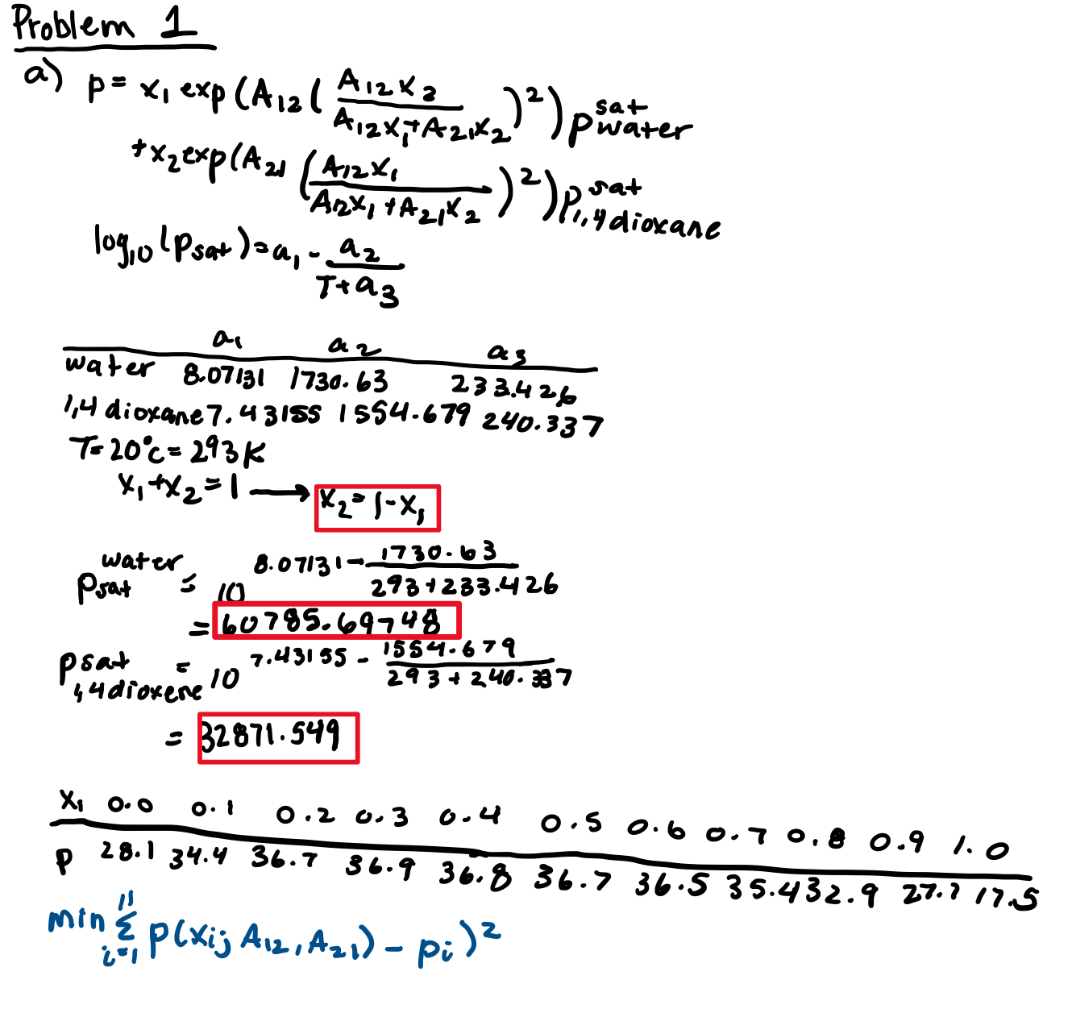 Problem 1
a) p = x₁ exp(A₁₂( A₁₂x₂ / A₁₂x₁+A₂₁x₂ )²) p^sat_water
+x₂exp(A₂₁ ( A₁₂x₁ / A₁₂x₁+A₂₁x₂ )²)p^sat_1,4dioxane
log₁₀(Psat)=a₁ - a₂ / T+a₃
a₁ a₂ a₃
water 8.07131 1730.63 233.426
1,4 dioxane 7.43155 1554.679 240.337
T=20°C=293K
x₁+x₂=1 → x₂=1-x₁
Psat^water = 10^(8.07131 - 1730.63 / 293+233.426)
= 60785.69748
Psat_1,4dioxene = 10^(7.43155 - 1554.679 / 293+240.337)
= 32871.549
x₁ 0.0 0.1 0.2 0.3 0.4 0.5 0.6 0.7 0.8 0.9 1.0
P 28.1 34.4 36.7 36.9 36.8 36.7 36.5 35.4 32.9 27.7 17.5
min Σ_{i=1}^{11} p(xi; A₁₂,A₂₁) - pi)²